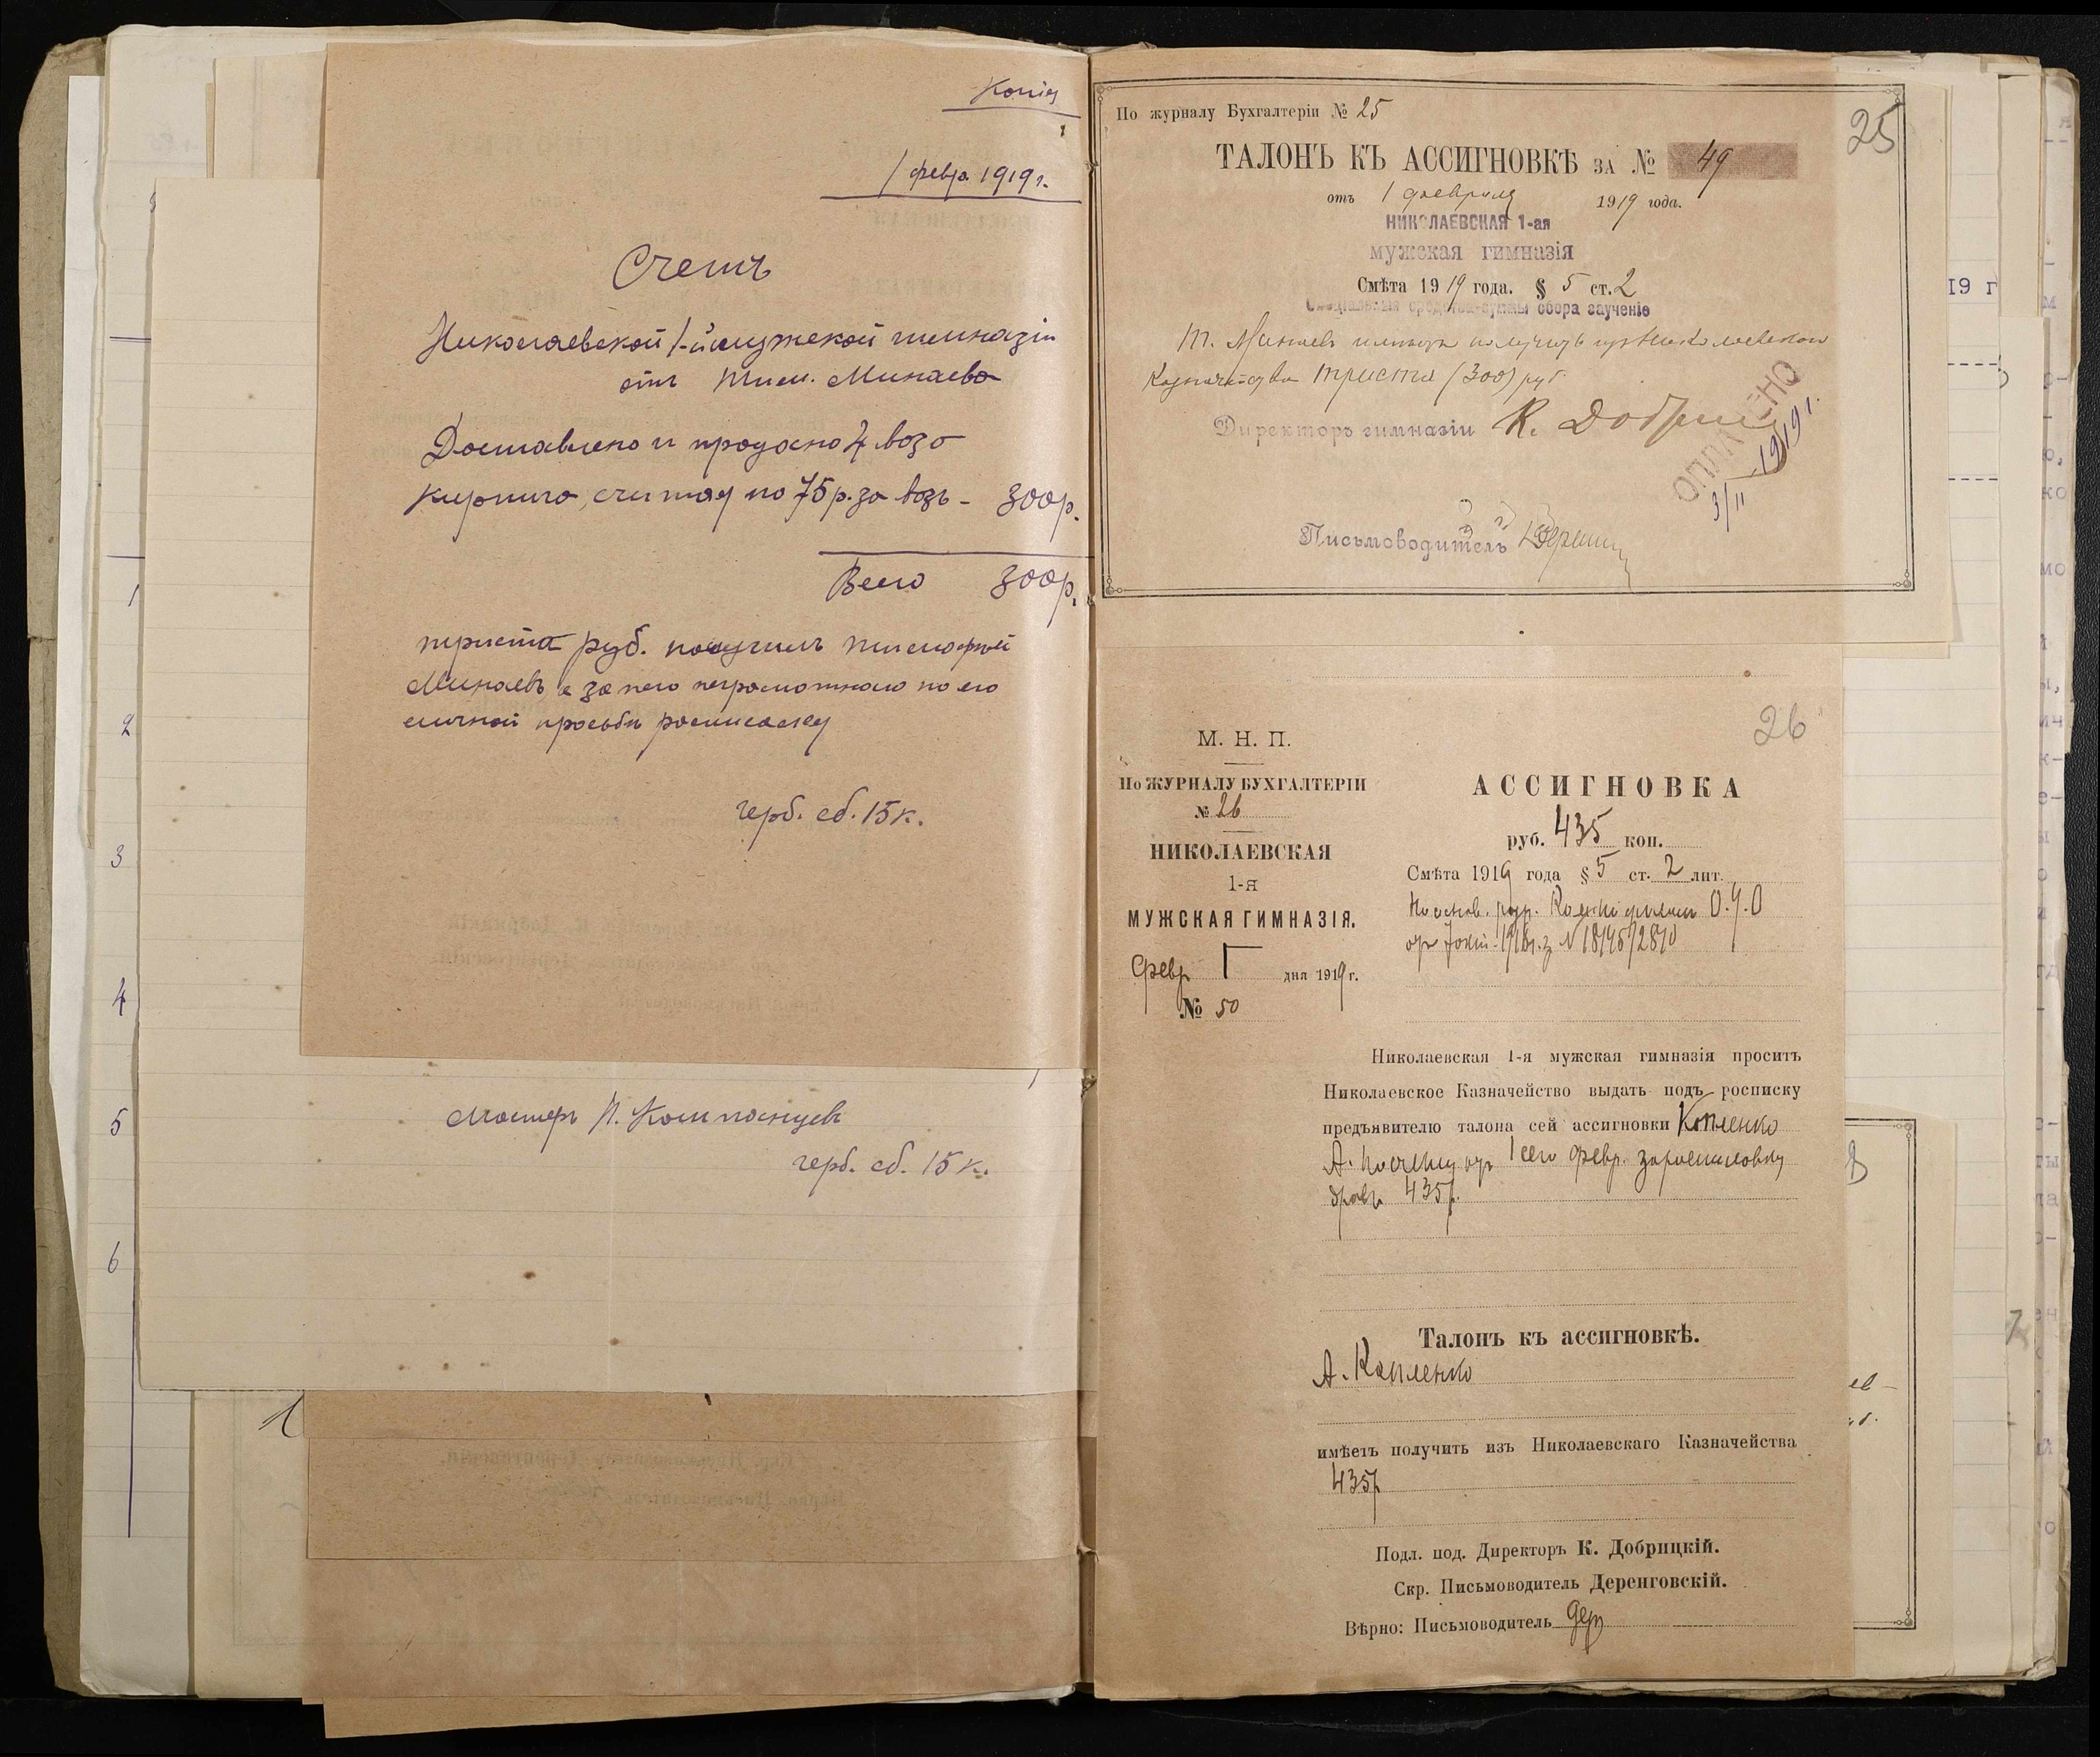 Копія
1 февр. 1919 г.
Счетъ
Николаевской 1-й мужской гимназіи
отъ Тим. Минаева
Доставлено и продано 4 воза
кирпича, считая по 75 р. за возъ - 300 р.
Всего 300 р.
триста руб. получилъ Тимофей
Минаевъ а за него неграмотнаго по его
личной просьбѣ росписался
герб. сб. 15 к.
Мастеръ П. Компанцевъ
герб. сб. 15 к.
1
2
3
4
5
6
По журналу Бухгалтеріи № 25
25
ТАЛОНЪ КЪ АССИГНОВКѢ ЗА № 49
отъ 1 февраля 1919 года.
НИКОЛАЕВСКАЯ 1-ая
мужская гимназія
Смѣта 1919 года. § 5 ст. 2
Спеціальныя средства-суммы сбора за ученіе
Т. Минаевъ имѣетъ получить изъ Николаевскаго
Казначейства триста (300) руб.
Директоръ гимназіи К. Добриц
ОПЛАЧЕНО
3/II 1919 г.
Письмоводитель
26
М. Н. П.
По ЖУРНАЛУ БУХГАЛТЕРІИ
№ 26
НИКОЛАЕВСКАЯ
1-я
МУЖСКАЯ ГИМНАЗІЯ.
Февр 1 дня 1919 г.
№ 50
АССИГНОВКА
руб. 435 коп.
Смѣта 1919 года § 5 ст. 2 лит.
На основ. О.У.О
Николаевская 1-я мужская гимназія проситъ
Николаевское Казначейство выдать подъ росписку
предъявителю талона сей ассигновки Капленко
А. по счету отъ 1 сего февр. за распиловку
дровъ 435 р.
Талонъ къ ассигновкѣ.
А. Капленко
имѣетъ получить изъ Николаевскаго Казначейства
435 р
Подл. под. Директоръ К. Добрицкій.
Скр. Письмоводитель Деренговскій.
Вѣрно: Письмоводитель Дер